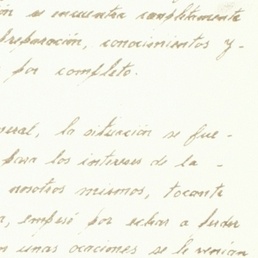 ón se encuentra completamente
preparación, conocimientos y-
por completo.
neral, la situación se fue-
para los intereses de la-
nosotros mismos, tocante
a, empesé por echar a luder
n unas ocaciones se le venían